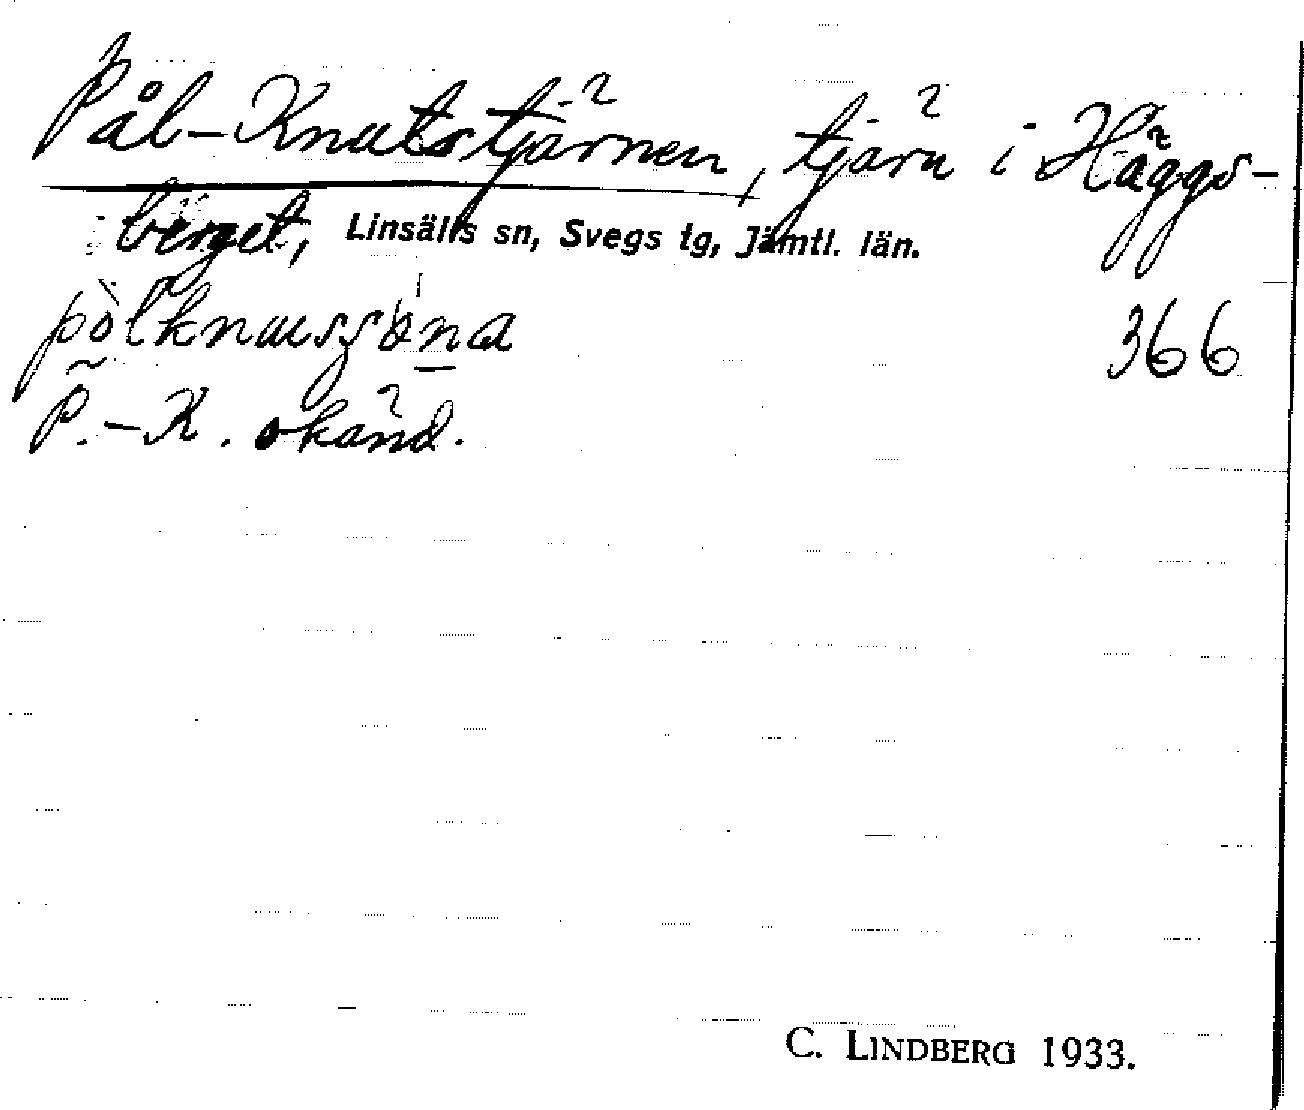 Pål-Knutstjärnen, tjärn i Häggs-
berget, Linsälls sn, Svegs tg, Jämtl. län.
366
P.-K. okänd.
C. LINDBERG 1933.